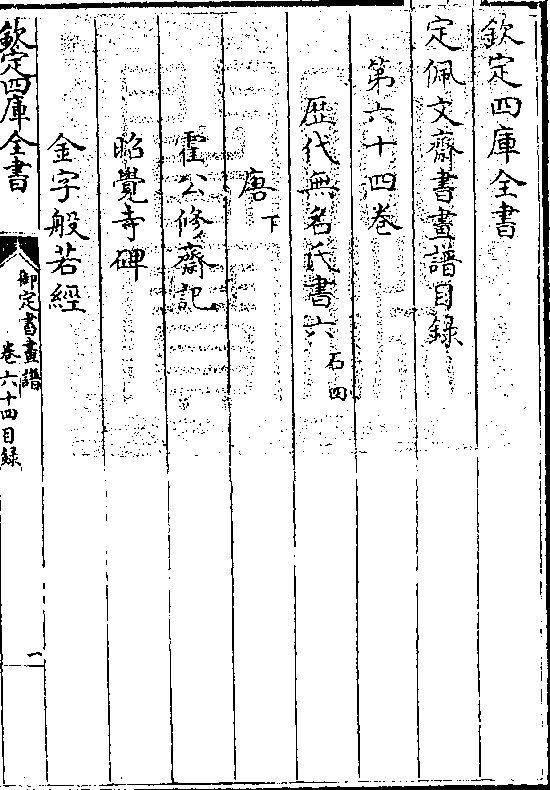 欽定四庫全書
定佩文齋書畫譜目録
第六十四卷
歴代無名氏書六石四
唐下
霍公修齋記
昭覺寺碑
金字般若經
欽定四庫全書
御定書畫譜
卷六十四目録
一